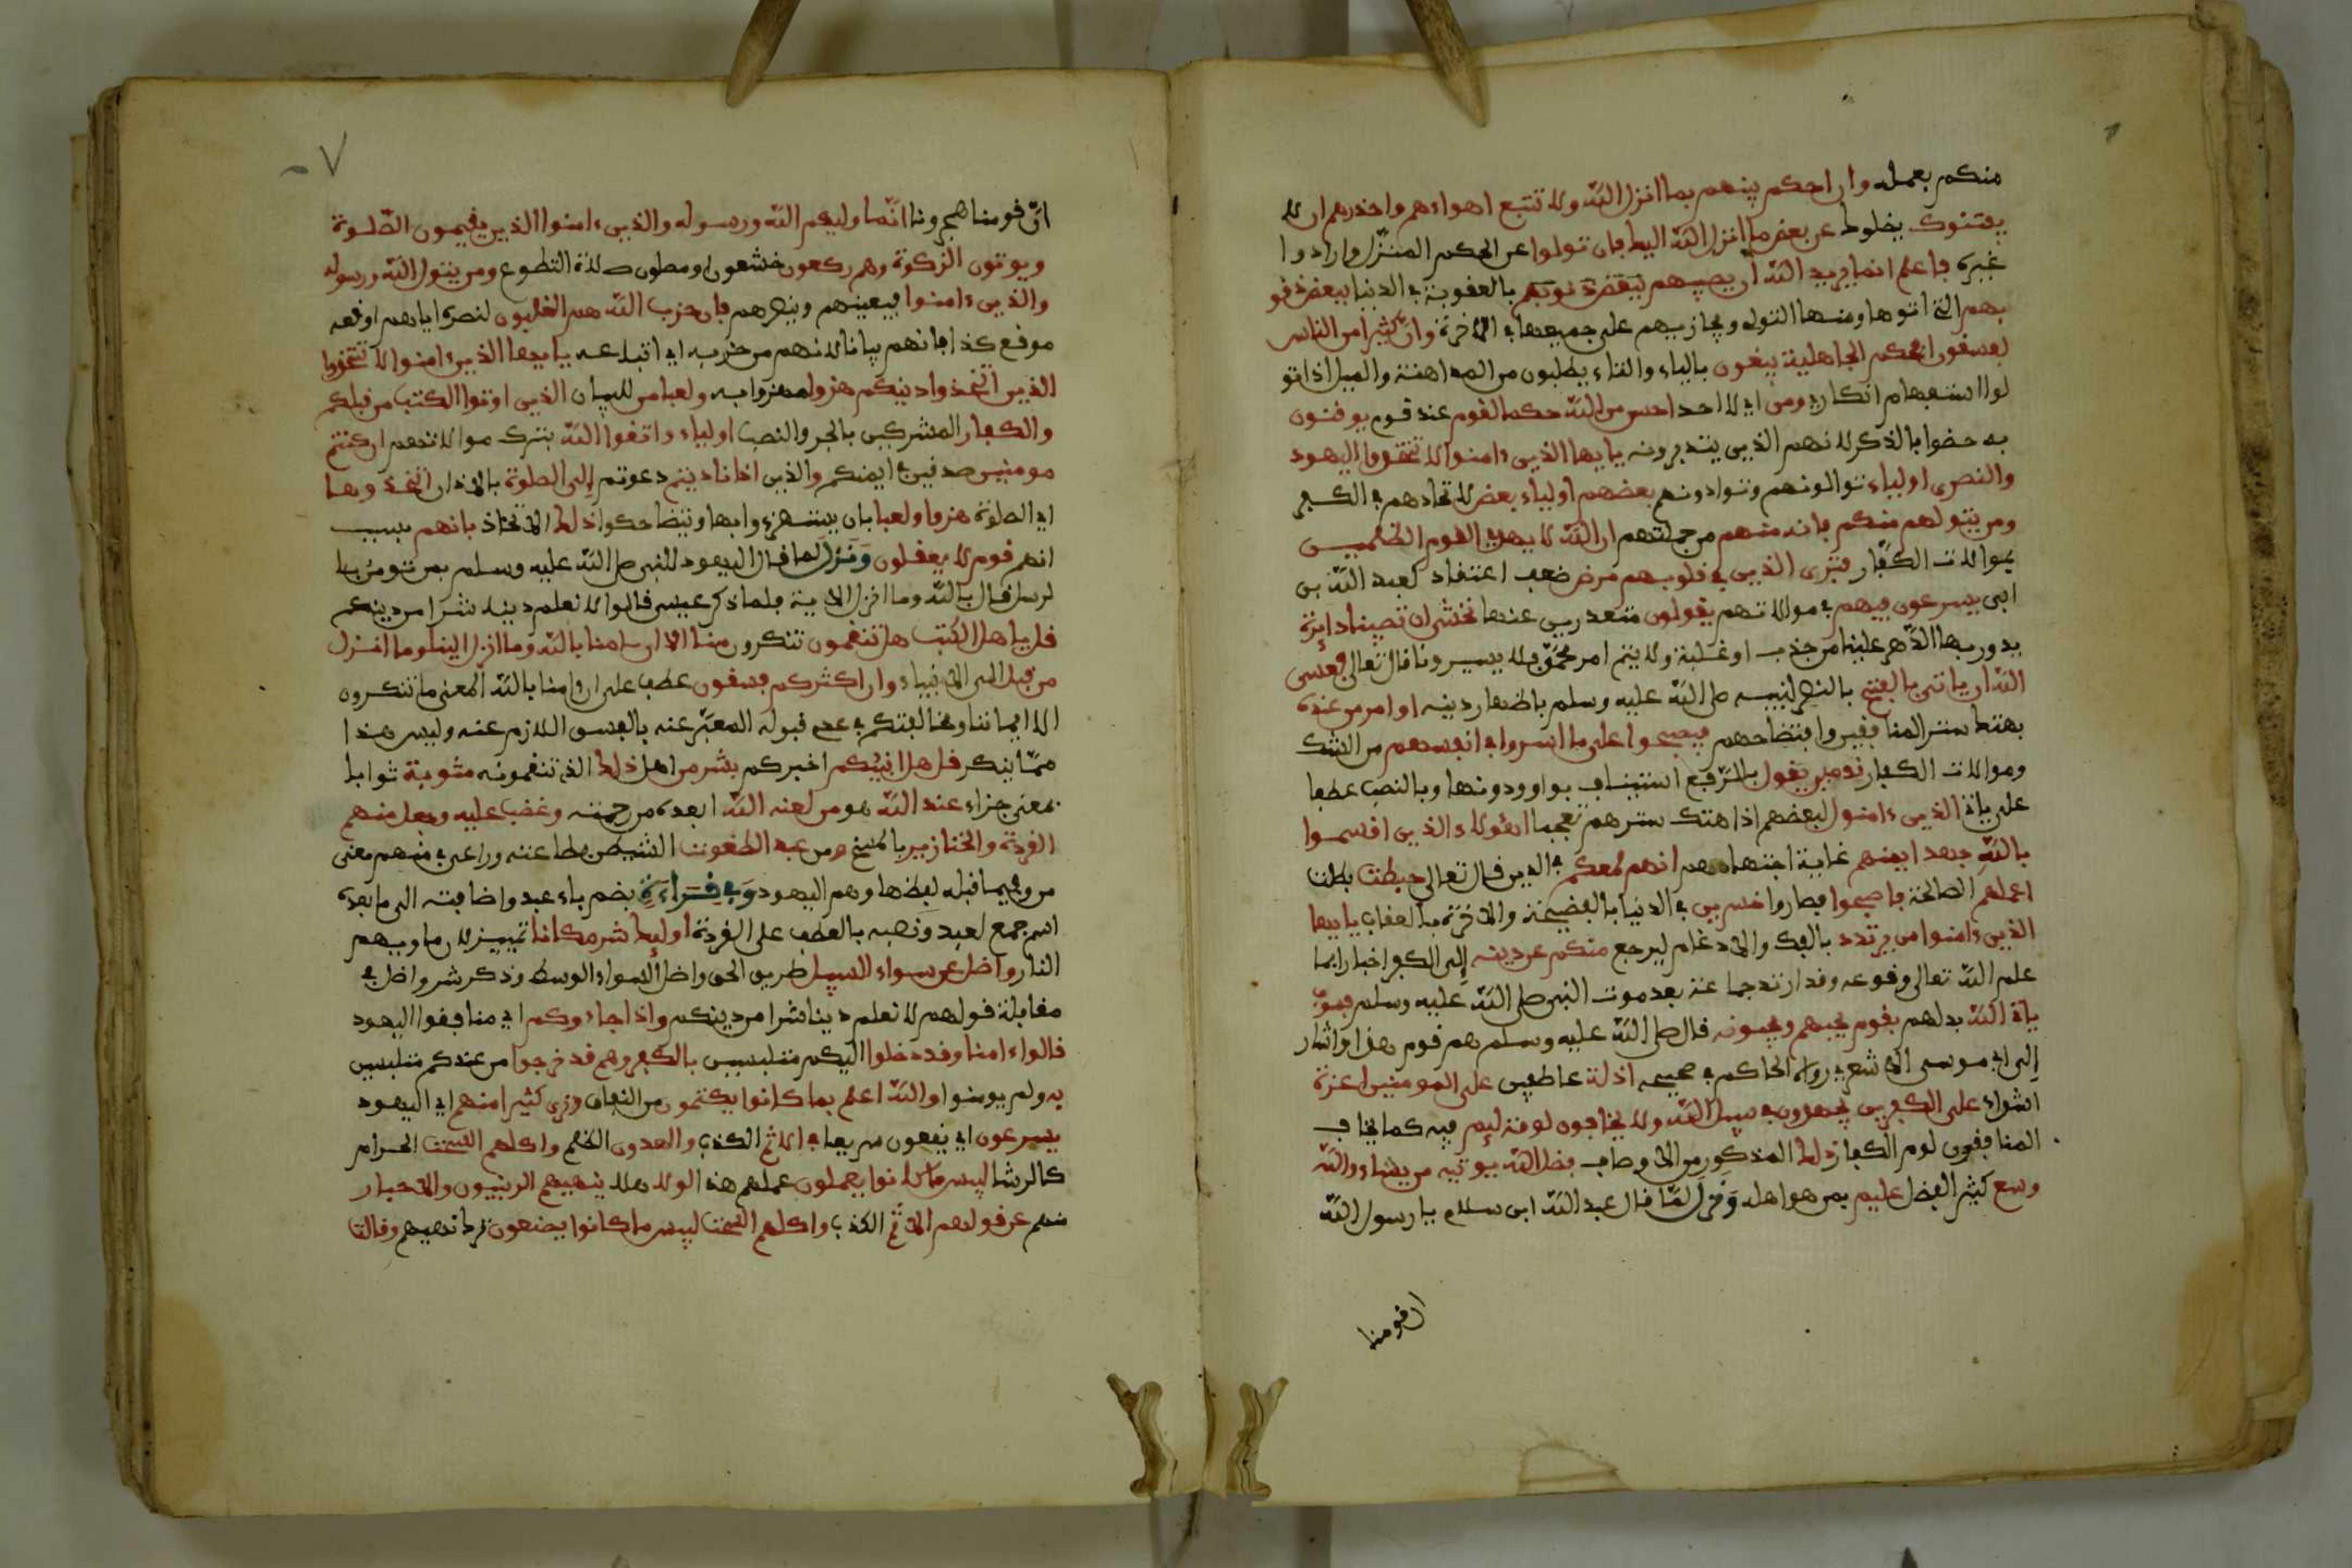 منكم بعمله وان احكم بينهم بما انزل الله ولا تتبع اهواءهم واحذرهم ان لا
يفتنوك يضلوك عن بعض ما انزل الله اليك فان تولوا عن الحكم المنزل وارادوا
غيره فاعلم انما يريد الله ان يصيبهم ببعض ذنوبهم بالعقوبة في الدنيا ببعض ذنو
بهم التي اتوها ومنها التولي ويجازيهم على جميعها في الاخرة وان كثيرا من الناس
لفسقون افحكم الجاهلية يبغون بالياء والتاء يطلبون من المداهنة والميل اذا تو
لوا استفهام انكاري ومن اي لا احد احسن من الله حكما لقوم عند قوم يوقنون
به خصوا بالذكر لانهم الذين يتدبرونه يايها الذين ءامنوا لا تتخذوا اليهود
والنصرى اولياء توالونهم وتوادونهم بعضهم اولياء بعض لاتحادهم في الكفر
ومن يتولهم منكم فانه منهم من جملتهم ان الله لا يهدي القوم الظلمين
بموالات الكفار فترى الذين في قلوبهم مرض ضعف اعتقاد كعبد الله بن
ابي يسرعون فيهم في موالاتهم يقولون معتذرين عنها نخشى ان تصيبنا دائرة
يدور بها الدهر علينا من جذب او غلبة ولا يتم امر محمد فلا يميرونا قال تعالى فعسى
الله ان ياتي بالفتح بالنصر لنبيه صلى الله عليه وسلم باظهار دينه او امر من عنده
بهتك ستر المنافقين وافتضاحهم فيصبحوا على ما اسروا في انفسهم من الشك
وموالات الكفار ندمين يقول بالرفع استينافا بواو ودونها وبالنصب عطفا
على ياتي الذين ءامنوا لبعضهم اذا هتك سترهم تعجبا اهؤلاء الذين اقسموا
بالله جهد ايمنهم غاية اجتهادهم انهم لمعكم في الدين قال تعالى حبطت بطلت
اعملهم الصالحة فاصبحوا فصاروا خسرين في الدنيا بالفضيحة والاخرة بالعقاب يايها
الذين ءامنوا من يرتدد بالفك والادغام ليرجع منكم عن دينه إلى الكفر اخبار بما
علم الله تعالى وقوعه وقد ارتد جماعة بعد موت النبي صلى الله عليه وسلم فسوف
ياتي الله بدلهم بقوم يحبهم ويحبونه قال صلى الله عليه وسلم هم قوم هذا واشار
إلى ابي موسى الاشعري رواه الحاكم في صحيحه اذلة عاطفين على المومنين اعزة
اشداء على الكفرين يجهدون في سبيل الله ولا يخافون لومة لايم فيه كما يخاف
المنافقون لوم الكفار ذلك المذكور من الاوصاف فضل الله يوتيه من يشاء والله
وسع كثير الفضل عليم بمن هو اهله ونزل لما قال عبد الله ابن سلام يا رسول الله
ان قومنا
ان قومنا هجرونا انما وليكم الله ورسوله والذين ءامنوا الذين يقيمون الصلوة
ويوتون الزكوة وهم ركعون خشعون او مصلون صلاة التطوع ومن يتول الله ورسوله
والذين ءامنوا فيعينهم وينصرهم فان حزب الله هم الغلبون لنصره اياهم اوقعه
موقع فانهم بيانا لانهم من حزبه اي اتباعه يايها الذين ءامنوا لا تتخذوا
الذين اتخذوا دينكم هزوا مهزوا به ولعبا من للبيان الذين اوتوا الكتب من قبلكم
والكفار المشركين بالجر والنصب اولياء واتقوا الله بترك موالاتهم ان كنتم
مومنين صدقين في ايمنكم والذين اذا ناديتم دعوتم إلى الصلوة بالاذان اتخذوها
اي الصلوة هزوا ولعبا بان يستهزءوا بها ويتضاحكوا ذلك الاتخاذ بانهم بسبب
انهم قوم لا يعقلون ونزل لما قال اليهود للنبي صلى الله عليه وسلم بمن تومن من ا
لرسل فقال بالله وما انزل الاية فلما ذكر عيسى قالوا لا نعلم دينا شرا من دينكم
قل ياهل الكتب هل تنقمون تنكرون منا الا ان ءامنا بالله وما انزل الينا وما انزل
من قبل إلى الانبياء وان اكثركم فسقون عطف على ان ءامنا بالله المعنى ما تنكرون
الا ايماننا ومخالفتكم في عدم قبوله المعبر عنه بالفسق اللازم عنه وليس هذا
مما ينكر قل هل انبئكم اخبركم بشر من اهل ذلك الذي تنقمونه مثوبة ثوابا
بمعنى جزاء عند الله هو من لعنه الله ابعده من رحمته وغضب عليه وجعل منهم
القردة والخنازير بالمسخ ومن عبد الطغوت الشيطن بطاعته وراعى في منهم معنى
من وفيما قبله لفظها وهم اليهود وفي قراءة بضم باء عبد واضافته الى ما بعده
اسم جمع لعبد ونصبه بالعطف على القردة اوليك شر مكانا تمييز لان ماويهم
النار واضل عن سواء السبيل طريق الحق واصل السواء الوسط وذكر شر واضل في
مقابلة قولهم لا نعلم دينا شرا من دينكم واذا جاءوكم اي منافقوا اليهود
قالوا ءامنا وقد دخلوا اليكم متلبسين بالكفر وهم قد خرجوا من عندكم متلبسين
به ولم يومنوا والله اعلم بما كانوا يكتمون من النفاق وترى كثيرا منهم اي اليهود
يسرعون اي يقعون سريعا في الاثم الكذب والعدون الظلم واكلهم السحت الحرام
كالرشا لبيس ما كانوا يعملون عملهم هذا لولا هلا ينهيهم الربنيون والاحبار
منهم عن قولهم الاثم الكذب واكلهم السحت لبيس ما كانوا يصنعون ترك نهيهم وقالت